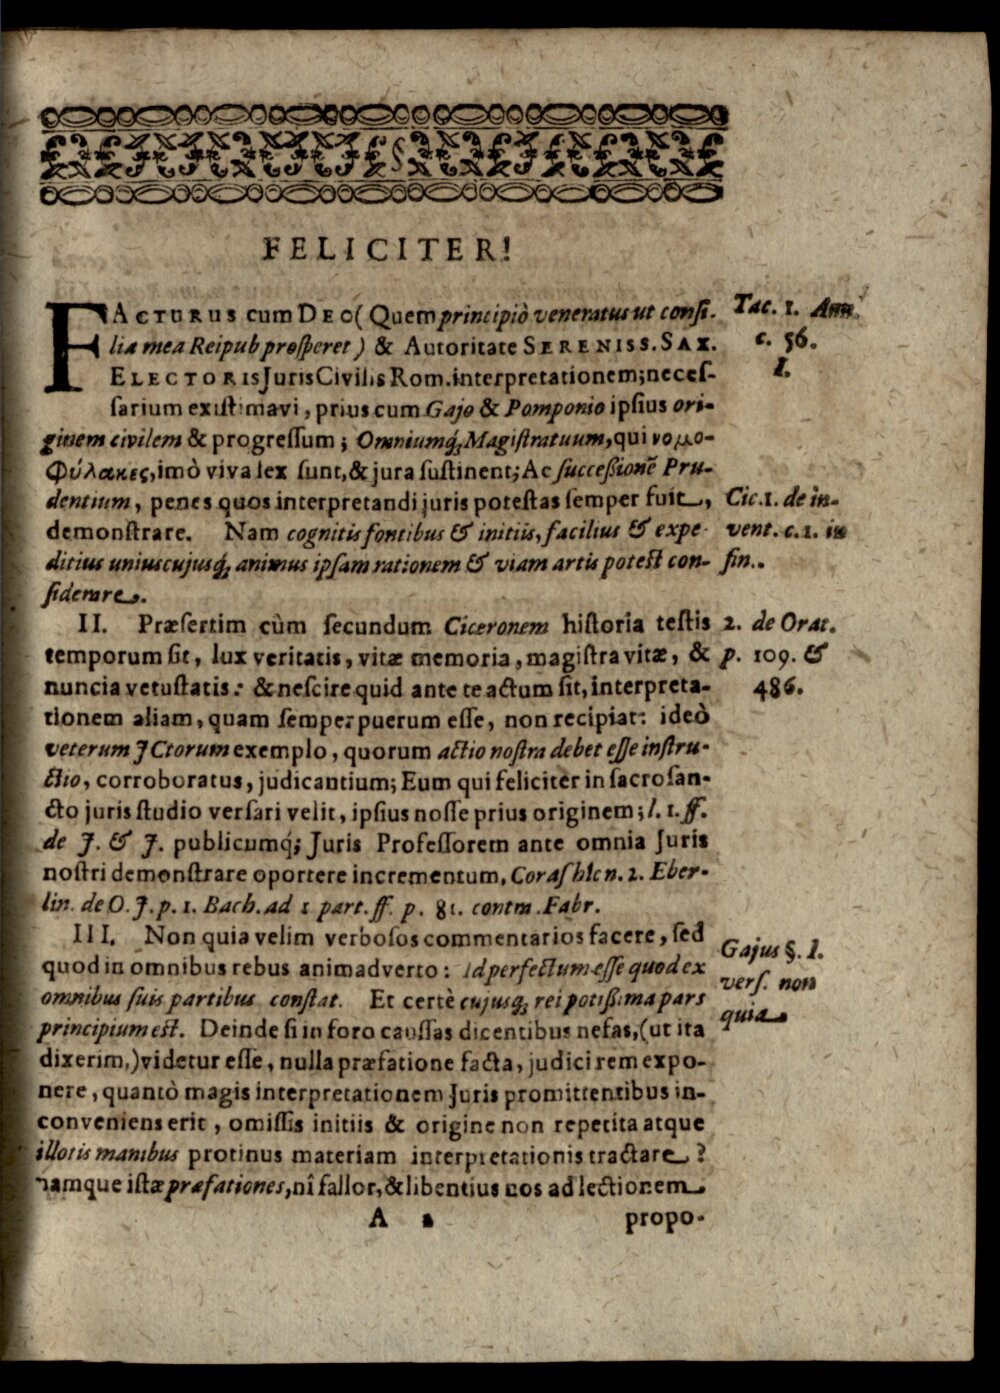 FELICITER!
FACTURUS cum DEO (Quem principiò veneratus ut consi-
lia mea Reipub prosperet) & Autoritate SERENISS. SAX.
ELECTORIS Juris Civilis Rom. interpretationem; neces-
sarium existimavi, prius cum Gajo & Pomponio ipsius ori-
ginem civilem & progressum; Omniumq́; Magistratuum, qui νομο-
φύλακες, imò viva lex sunt, & jura sustinent; Ac successionẽ Pru-
dentium, penes quos interpretandi juris potestas semper fuit,
demonstrare. Nam cognitis fontibus & initiis, facilius & expe-
ditius uniuscujusq́; animus ipsam rationem & viam artis potest con-
siderare.
Tac. 1. Ann.
c. 56.
I.
Cic. 1. de in-
vent. c. 1. in
fin..
II. Præsertim cùm secundum Ciceronem historia testis
temporum sit, lux veritatis, vitæ memoria, magistra vitæ, &
nuncia vetustatis: & nescire quid ante te actum sit, interpreta-
tionem aliam, quam semper puerum esse, non recipiat: ideò
veterum JCtorum exemplo, quorum actio nostra debet esse instru-
ctio, corroboratus, judicantium; Eum qui feliciter in sacrosan-
cto juris studio versari velit, ipsius nosse prius originem; l. 1. ff.
de J. & J. publicumq́; Juris Professorem ante omnia Juris
nostri demonstrare oportere incrementum, Coras hîc n. 2. Eber-
lin. de O. J. p. 1. Bach. ad 1 part. ff. p. 81. contra Fabr.
2. de Orat.
p. 109. &
486.
III. Non quia velim verbosos commentarios facere, sed
quod in omnibus rebus animadverto: id perfectum esse quod ex
omnibus suis partibus constat. Et certè cujusq́; rei potissima pars
principium est. Deinde si in foro caussas dicentibus nefas, (ut ita
dixerim,) videtur esse, nulla præfatione facta, judici rem expo-
nere, quantò magis interpretationem Juris promittentibus in-
conveniens erit, omissis initiis & origine non repetita atque
illotis manibus protinus materiam interpretationis tractare?
namque istæ præfationes, nî fallor, & libentius nos ad lectionem
Gajus §. 1.
vers. non
quia
A 2 propo-